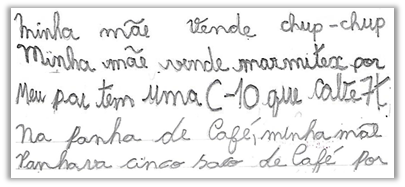 minha mãe vende chup-chup
Minha mãe vende marmitex por
Meu pai tem uma C-10 que
Na panha de Café, minha mãe
Panhava cinco saco de Café por